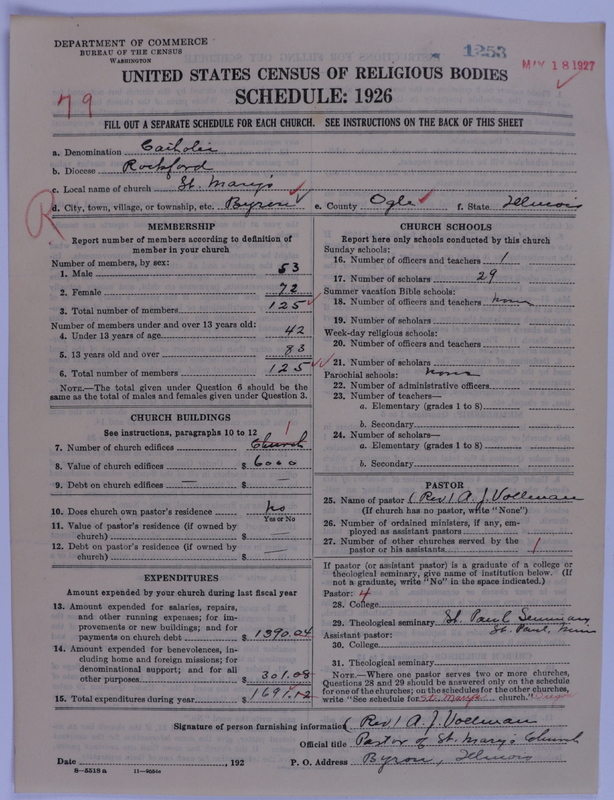 DEPARTMENT OF COMMERCE
BUREAU OF THE CENSUS
WASHINGTON
1253
MAY 18 1927
UNITED STATES CENSUS OF RELIGIOUS BODIES
SCHEDULE: 1926
79
FILL OUT A SEPARATE SCHEDULE FOR EACH CHURCH. SEE INSTRUCTIONS ON THE BACK OF THIS SHEET
a. Denomination Catholic
b. Diocese Rockford
c. Local name of church St. Mary's
R
d. City, town, village, or township, etc. Byron e. County Ogle f. State Illinois
MEMBERSHIP
Report number of members according to definition of
member in your church
Number of members, by sex:
1. Male 53
2. Female 72
3. Total number of members 125
Number of members under and over 13 years old:
4. Under 13 years of age 42
5. 13 years old and over 83
6. Total number of members 125
NOTE.—The total given under Question 6 should be
same as the total of males and females given under Question 3.
CHURCH BUILDINGS
See instructions, paragraphs 10 to 12
7. Number of church edifices 1 Church
8. Value of church edifices $ 6000
9. Debt on church edifices — $ —
10. Does church own pastor's residence No
Yes or No
11. Value of pastor's residence (if owned by
church) $ —
12. Debt on pastor's residence (if owned by
church) $ —
EXPENDITURES
Amount expended by your church during last fiscal year
13. Amount expended for salaries, repairs,
and other running expenses; for im-
provements or new buildings; and for
payments on church debt $ 1390.04
14. Amount expended for benevolences, in-
cluding home and foreign missions; for
denominational support; and for all
other purposes $ 301.08
15. Total expenditures during year $ 1691.12
CHURCH SCHOOLS
Report here only schools conducted by this church
Sunday schools:
16. Number of officers and teachers 1
17. Number of scholars 29
Summer vacation Bible schools:
18. Number of officers and teachers none
19. Number of scholars
Week-day religious schools:
20. Number of officers and teachers
21. Number of scholars
Parochial schools: none
22. Number of administrative officers
23. Number of teachers—
a. Elementary (grades 1 to 8)
b. Secondary
24. Number of scholars—
a. Elementary (grades 1 to 8)
b. Secondary
PASTOR
25. Name of pastor (Rev) A. J. Vollman
(If church has no pastor, write "None")
26. Number of ordained ministers, if any, em-
ployed as assistant pastors
27. Number of other churches served by the
pastor or his assistants 1
If pastor (or assistant pastor) is a graduate of a college or
theological seminary, give name of institution below. (If
not a graduate, write "No" in the space indicated.)
Pastor: 4
28. College
29. Theological seminary St. Paul Seminary
St. Paul, Minn
Assistant pastor:
30. College
31. Theological seminary
NOTE.—Where one pastor serves two or more churches,
Questions 28 and 29 should be answered only on the schedule
for one of the churches; on the schedules for the other churches,
write "See schedule for St. Mary's church."
Signature of person furnishing information (Rev) A. J. Vollman
Official title Pastor of St. Mary's Church
Date , 192 P. O. Address Byron, Illinois
8—5518a 11—9505e